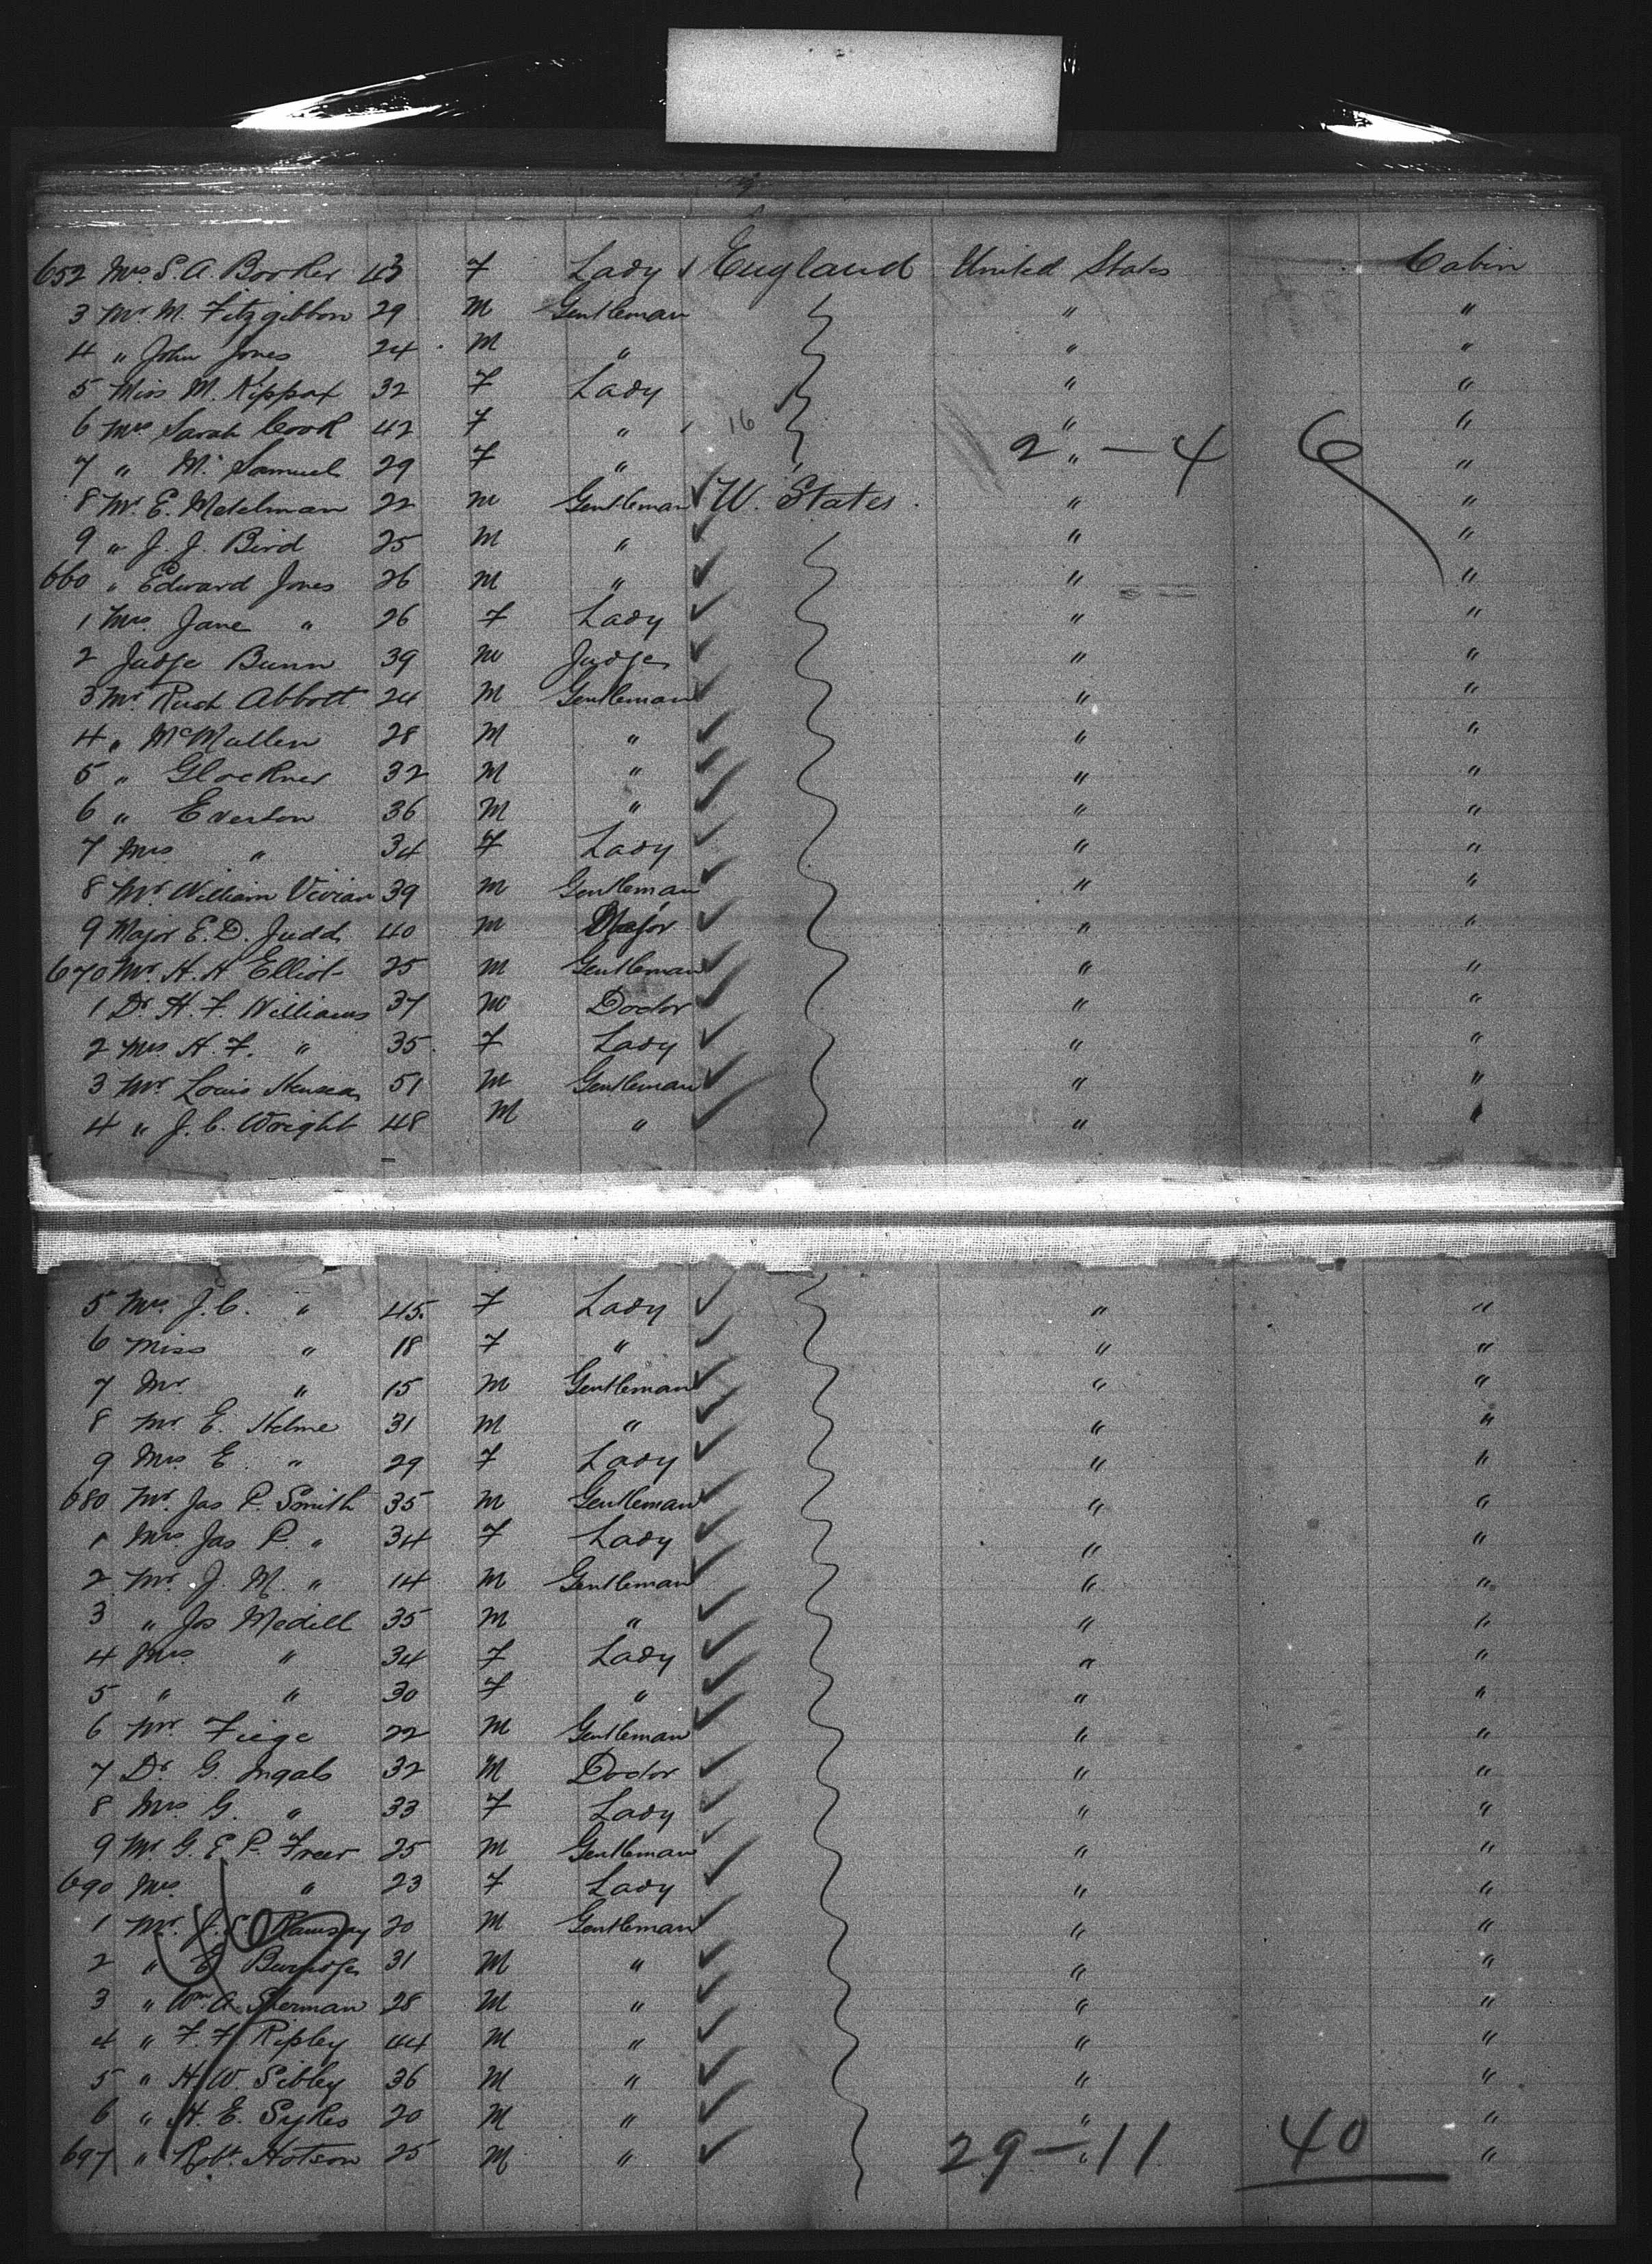 652 Mrs S. A. Booker 43 F Lady England United States Cabin
3 Mr M. Fitzgibbon 29 M Gentleman " "
4 " John Jones 24 M " " "
5 Miss M. Kippax 32 F Lady " "
6 Mrs Sarah Cook 42 F " 16 " "
7 " M. Samuel 29 F " " "
2 - 4 6
8 Mr E. Metelman 22 M Gentleman U. States " "
9 " J. J. Bird 25 M " " "
660 " Edward Jones 26 M " " "
1 Mrs Jane " 26 F Lady " "
2 Judge Bunn 39 M Judge " "
3 Mr Rush Abbott 24 M Gentleman " "
4 " McMullen 28 M " " "
5 " Glockner 32 M " " "
6 " Everton 36 M " " "
7 Mrs " 34 F Lady " "
8 Mr William Vivian 39 M Gentleman " "
9 Major E. D. Judd 40 M Major " "
670 Mr H. H Elliot 25 M Gentleman " "
1 Dr H. F. Williams 37 M Doctor " "
2 Mrs H. F. " 35 F Lady " "
3 Mr Louis 51 M Gentleman " "
4 " J. C. Wright 48 M " " "
5 Mrs J. C. " 45 F Lady " "
6 Miss " 18 F " " "
7 Mr " 15 M Gentleman " "
8 Mr E. Helme 31 M " " "
9 Mrs E. " 29 F Lady " "
680 Mr Jas P. Smith 35 M Gentleman " "
1 Mrs Jas P. " 34 F Lady " "
2 Mr J. M. " 14 M Gentleman " "
3 " Jos Medill 35 M " " "
4 Mrs " 34 F Lady " "
5 " " 30 F " " "
6 Mr Feige 22 M Gentleman " "
7 Dr G. Ingals 32 M Doctor " "
8 Mrs G. " 33 F Lady " "
9 Mr G. E. P. Freer 25 M Gentleman " "
690 Mrs " 23 F Lady " "
1 Mr Ramsay 20 M Gentleman " "
2 " E 31 M " " "
3 " Wm A. Sherman 28 M " " "
4 " F. F. Ripley 44 M " " "
5 " H. W. Sibley 36 M " " "
6 " H. E. Sykes 20 M " " "
697 " Robt. Hotson 25 M " " "
29 - 11 40